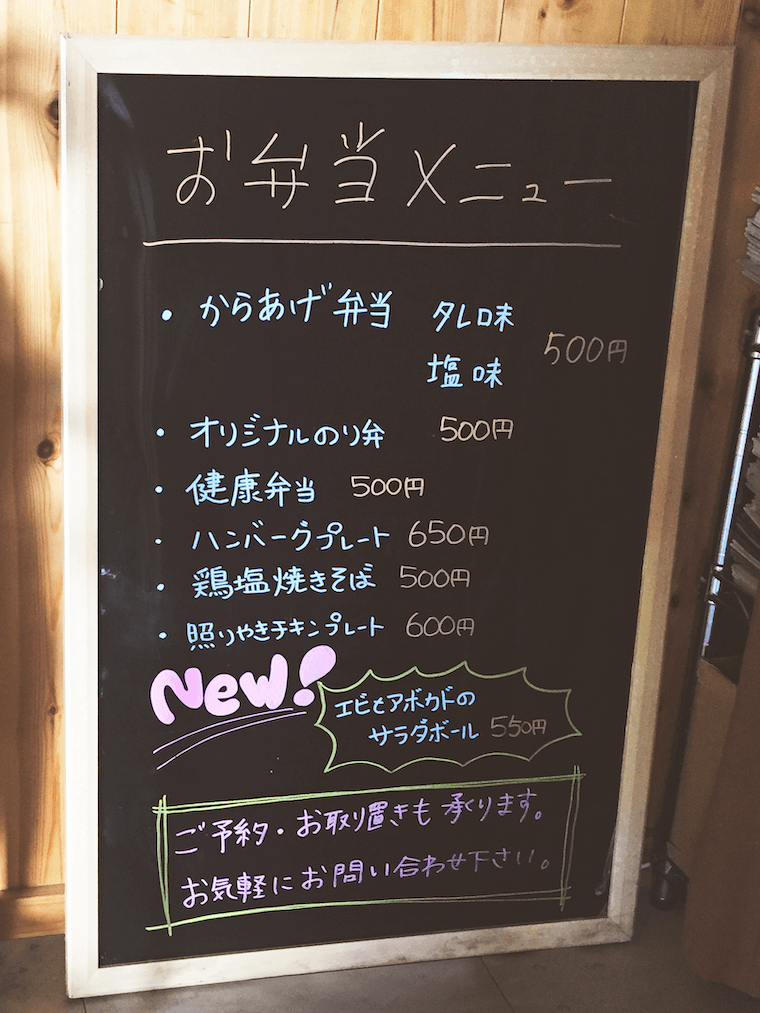 お弁当メニュー
・からあげ弁当 タレ味
塩味 500円
・オリジナルのり弁 500円
・健康弁当 500円
・ハンバーグプレート 650円
・鶏塩焼きそば 500円
・照りやきチキンプレート 600円
New!
エビとアボカドの
サラダボール 550円
ご予約・お取り置きも承ります。
お気軽にお問い合わせ下さい。